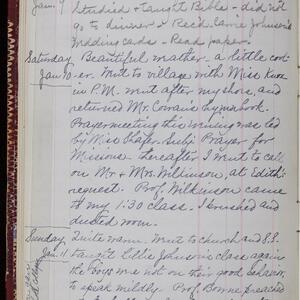 Jan. 9 Studied & taught Bible - did not
go to dinner & Rec'd Carrie Johnson's
wedding cards - Read paper.
Saturday Beautiful weather - a little cold-
Jan. 10 er. Went to village with Miss Knox
in P.M. went after my shoes, and
returned Mr. Cowan's hymnbook.
Prayer meeting this evening was led
by Miss Shafer. Subj. Prayer for
Missions - thereafter I went to call
on Mr & Mrs. Wilkinson, at Edith's
request. Prof. Wilkinson came
to my 1:30 class. I brushed and
dusted room.
Sunday Quite warm. Went to church and S.S.
Jan. 11 Taught Lillie Johnson's class again
the boys were not on their good behavior,
to speak mildly. Prof. Bonne preached